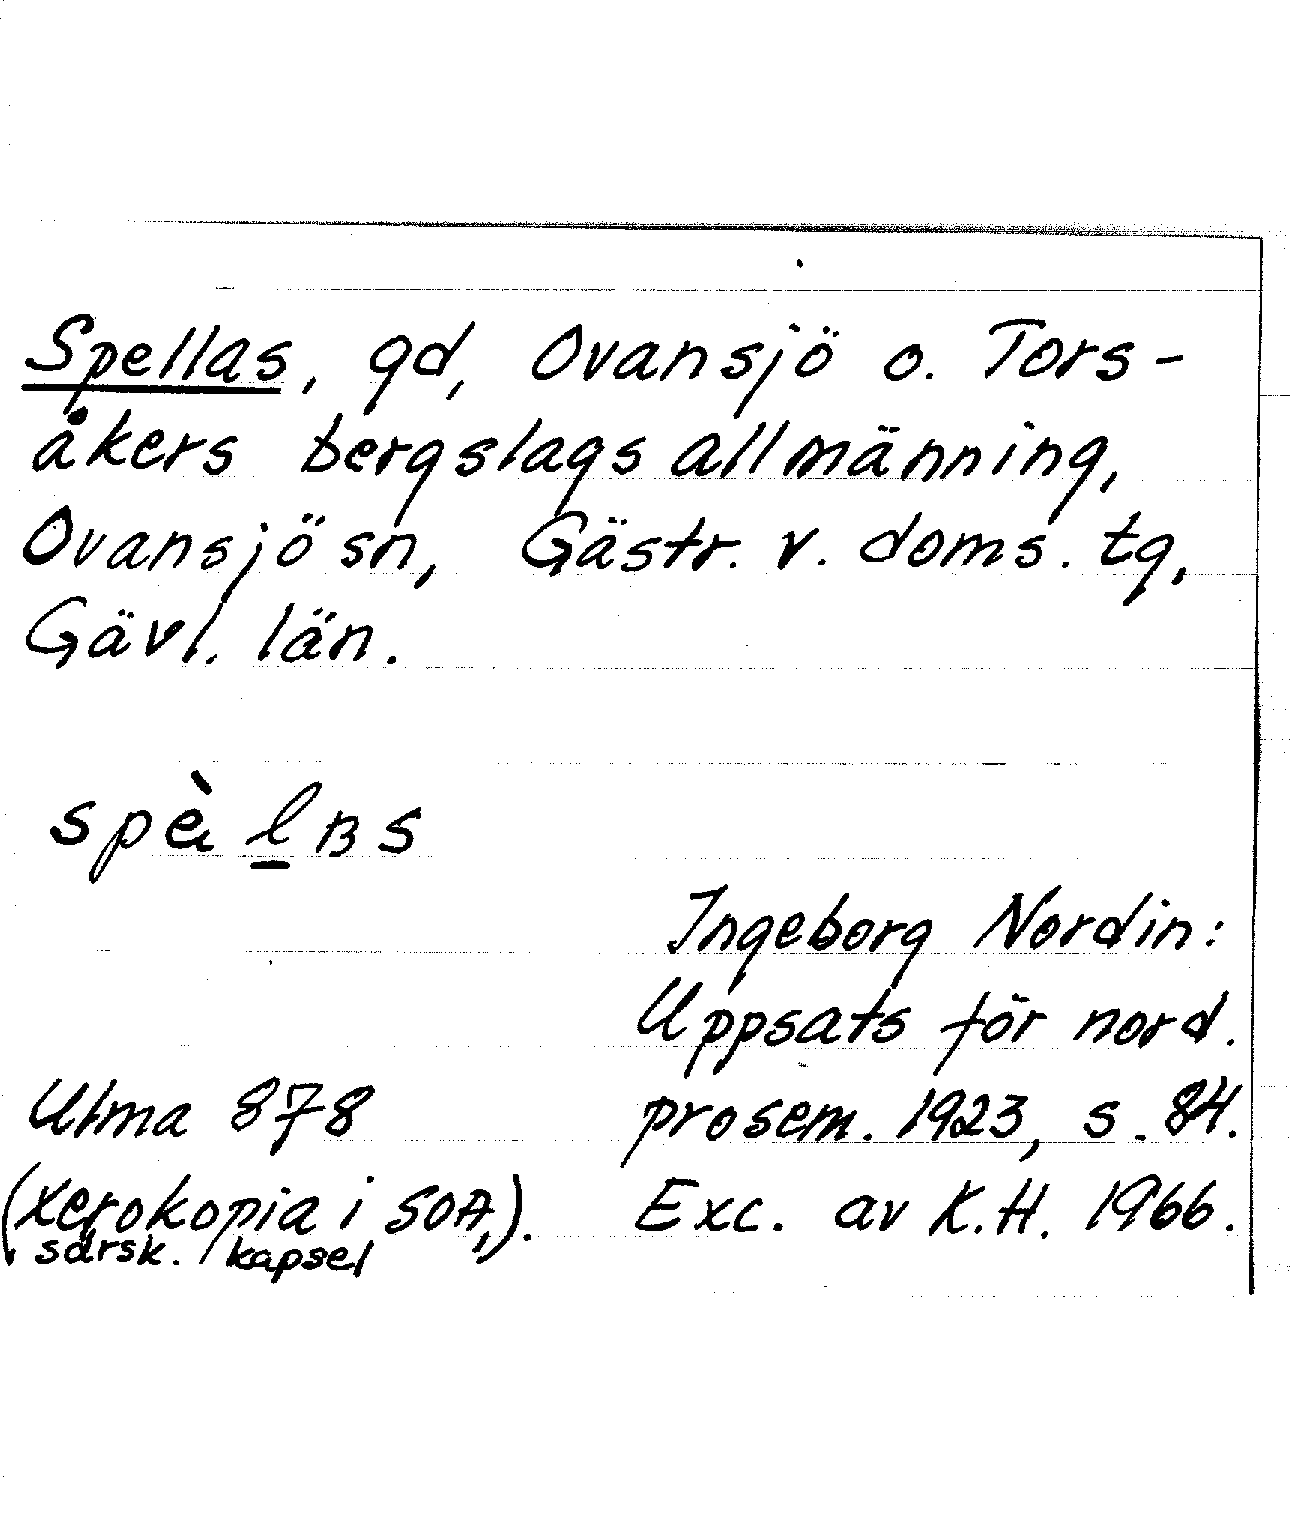 Spellas, gd, Ovansjö o. Tors-
åkers bergslags allmänning,
Ovansjö sn, Gästr. v. doms. tg,
Gävl. län.
spè l̲ʙs
Ingeborg Nordin:
Uppsats för nord.
Ulma 878 prosem. 1923, s. 84.
(xerokopia i SOA,). Exc. av K.H. 1966.
särsk. kapsel